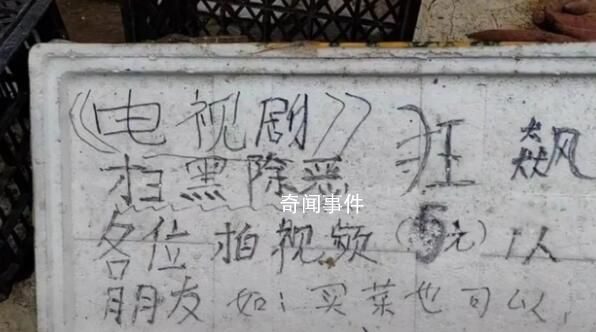 《电视剧》 狂飙
扫黑除恶
奇闻事件
各位拍视频(5元)1人
朋友如：买菜也可以,